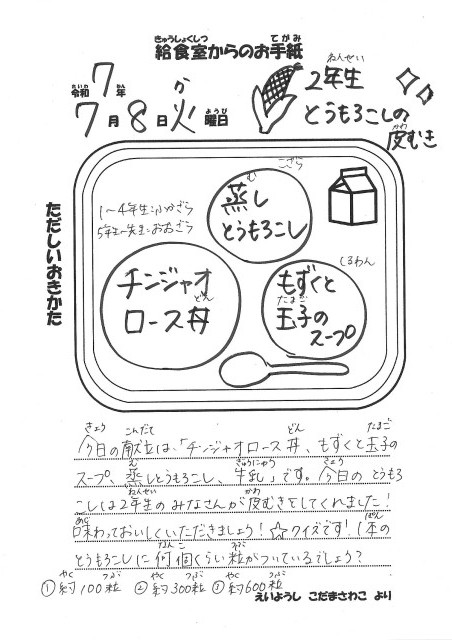 きゅうしょくしつ てがみ
給食室からのお手紙
れいわ ねん
令和7年
か ようび
7月8日火曜日
ねんせい
2年生
とうもろこしの
かわ
皮むき
ただしいおきかた
1〜4年生:ふかざら
5年生〜先生:おおざら
こざら
む
蒸し
とうもろこし
チンジャオ
どん
ロース丼
しるわん
もずくと
たまご
玉子の
スープ
きょう こんだて どん たまご
今日の献立は、「チンジャオロース丼、もずくと玉子の
ぎゅうにゅう きょう
スープ、蒸しとうもろこし、牛乳」です。今日のとうもろ
ねんせい かわ
こしは2年生のみなさんが皮むきをしてくれました!
あじ ぽん
味わっておいしくいただきましょう!☆クイズです!1本の
なんこ つぶ
とうもろこしに何個くらい粒がついているでしょう?
やく つぶ やく つぶ やく つぶ
①約100粒 ②約300粒 ③約600粒
えいようし こだまさわこ より